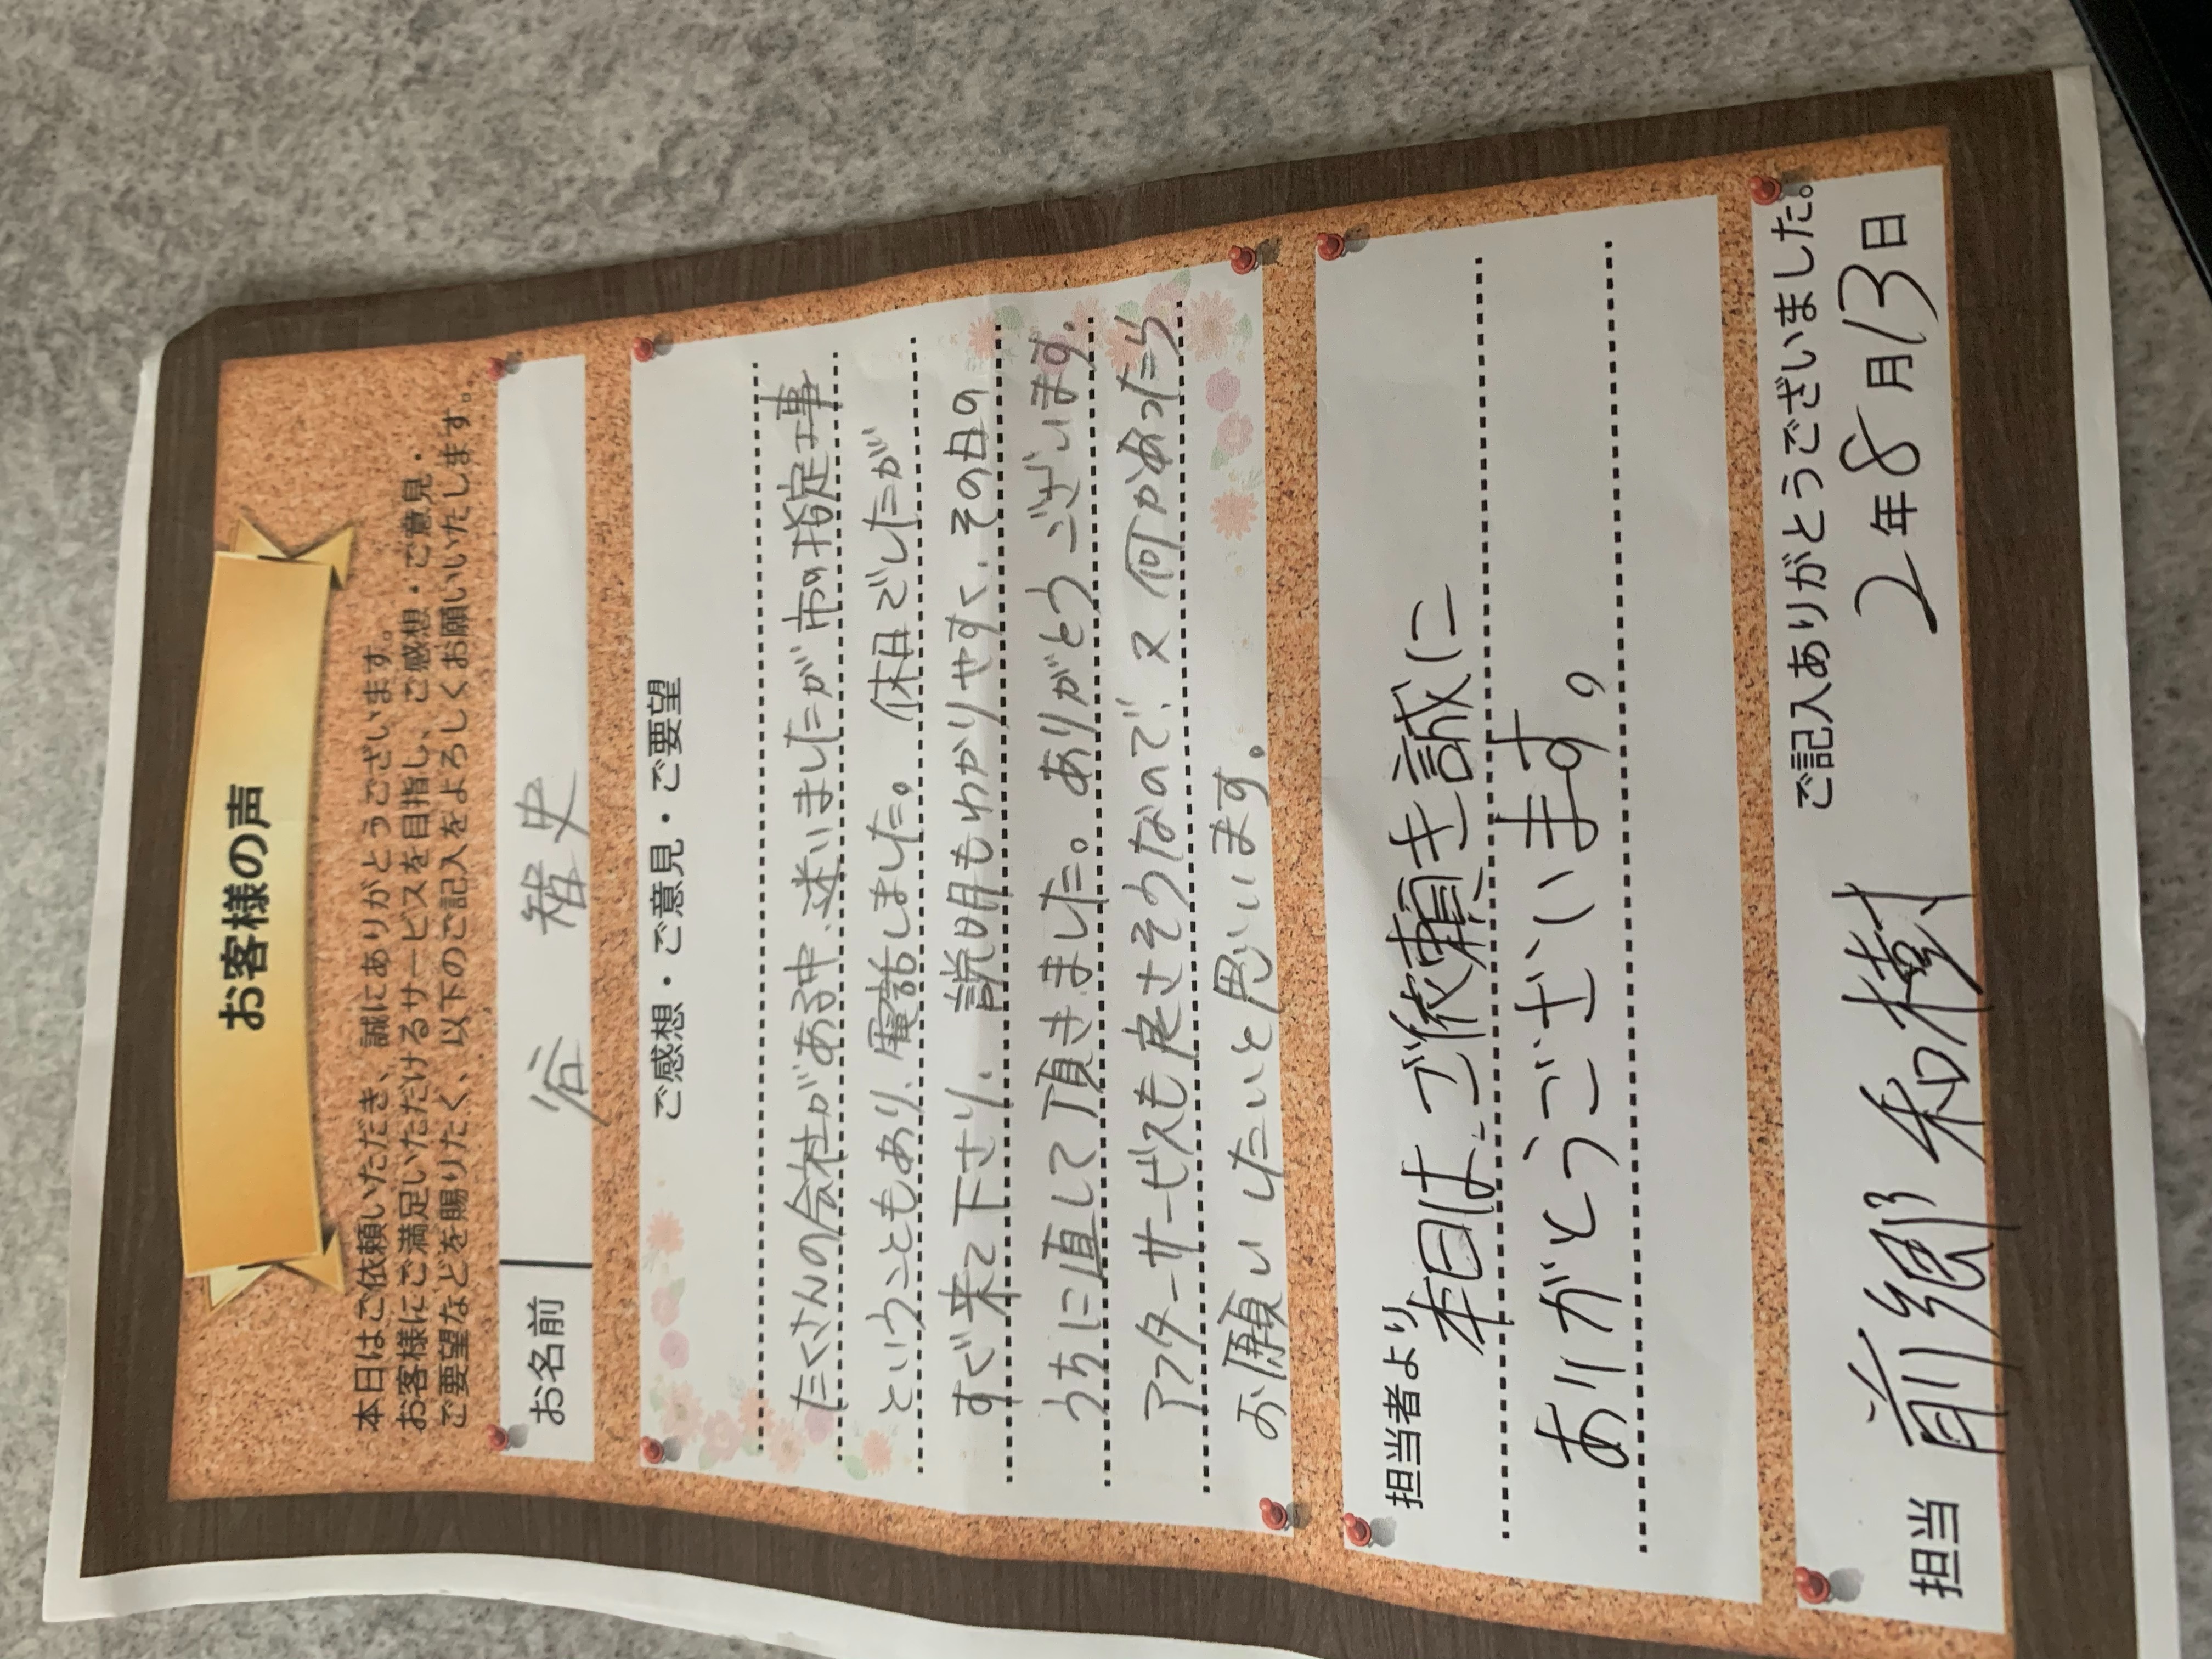 お客様の声
本日はご依頼いただき、誠にありがとうございます。
お客様にご満足いただけるサービスを目指し、ご感想・ご意見・
ご要望などを賜りたく、以下のご記入をよろしくお願いいたします。
お名前 谷 禎史
ご感想・ご意見・ご要望
たくさんの会社がある中、迷いましたが市の指定工事
ということもあり、電話しました。 休日でしたが
すぐ来て下さり、説明もわかりやすく、その日の
うちに直して頂きました。ありがとうございます。
アフターサービスも良さそうなので、又何かあったら
お願いしたいと思います。
担当者より
本日は、ご依頼頂き誠に
ありがとうございます。
ご記入ありがとうございました。
担当 前郷 和樹 2年8月13日